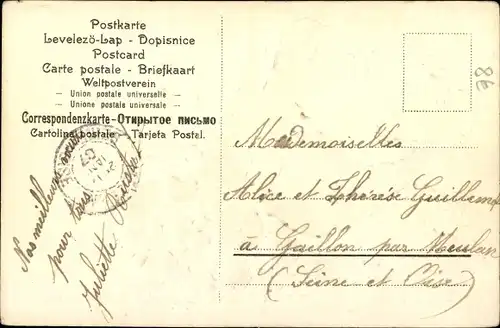 Postkarte
Levelezö-Lap - Dopisnice
Postcard
Carte postale - Briefkaart
Weltpostverein
- Union postale universelle -
- Unione postale universale -
Correspondenzkarte-Открытое письмо
Cartolina postale - Tarjeta Postal.
86
Mademoiselles
Alice et Thérèse Guillemot
à Gaillon par Meulan
(Seine et Oise)
Nos meilleurs
pour tous
Juliette